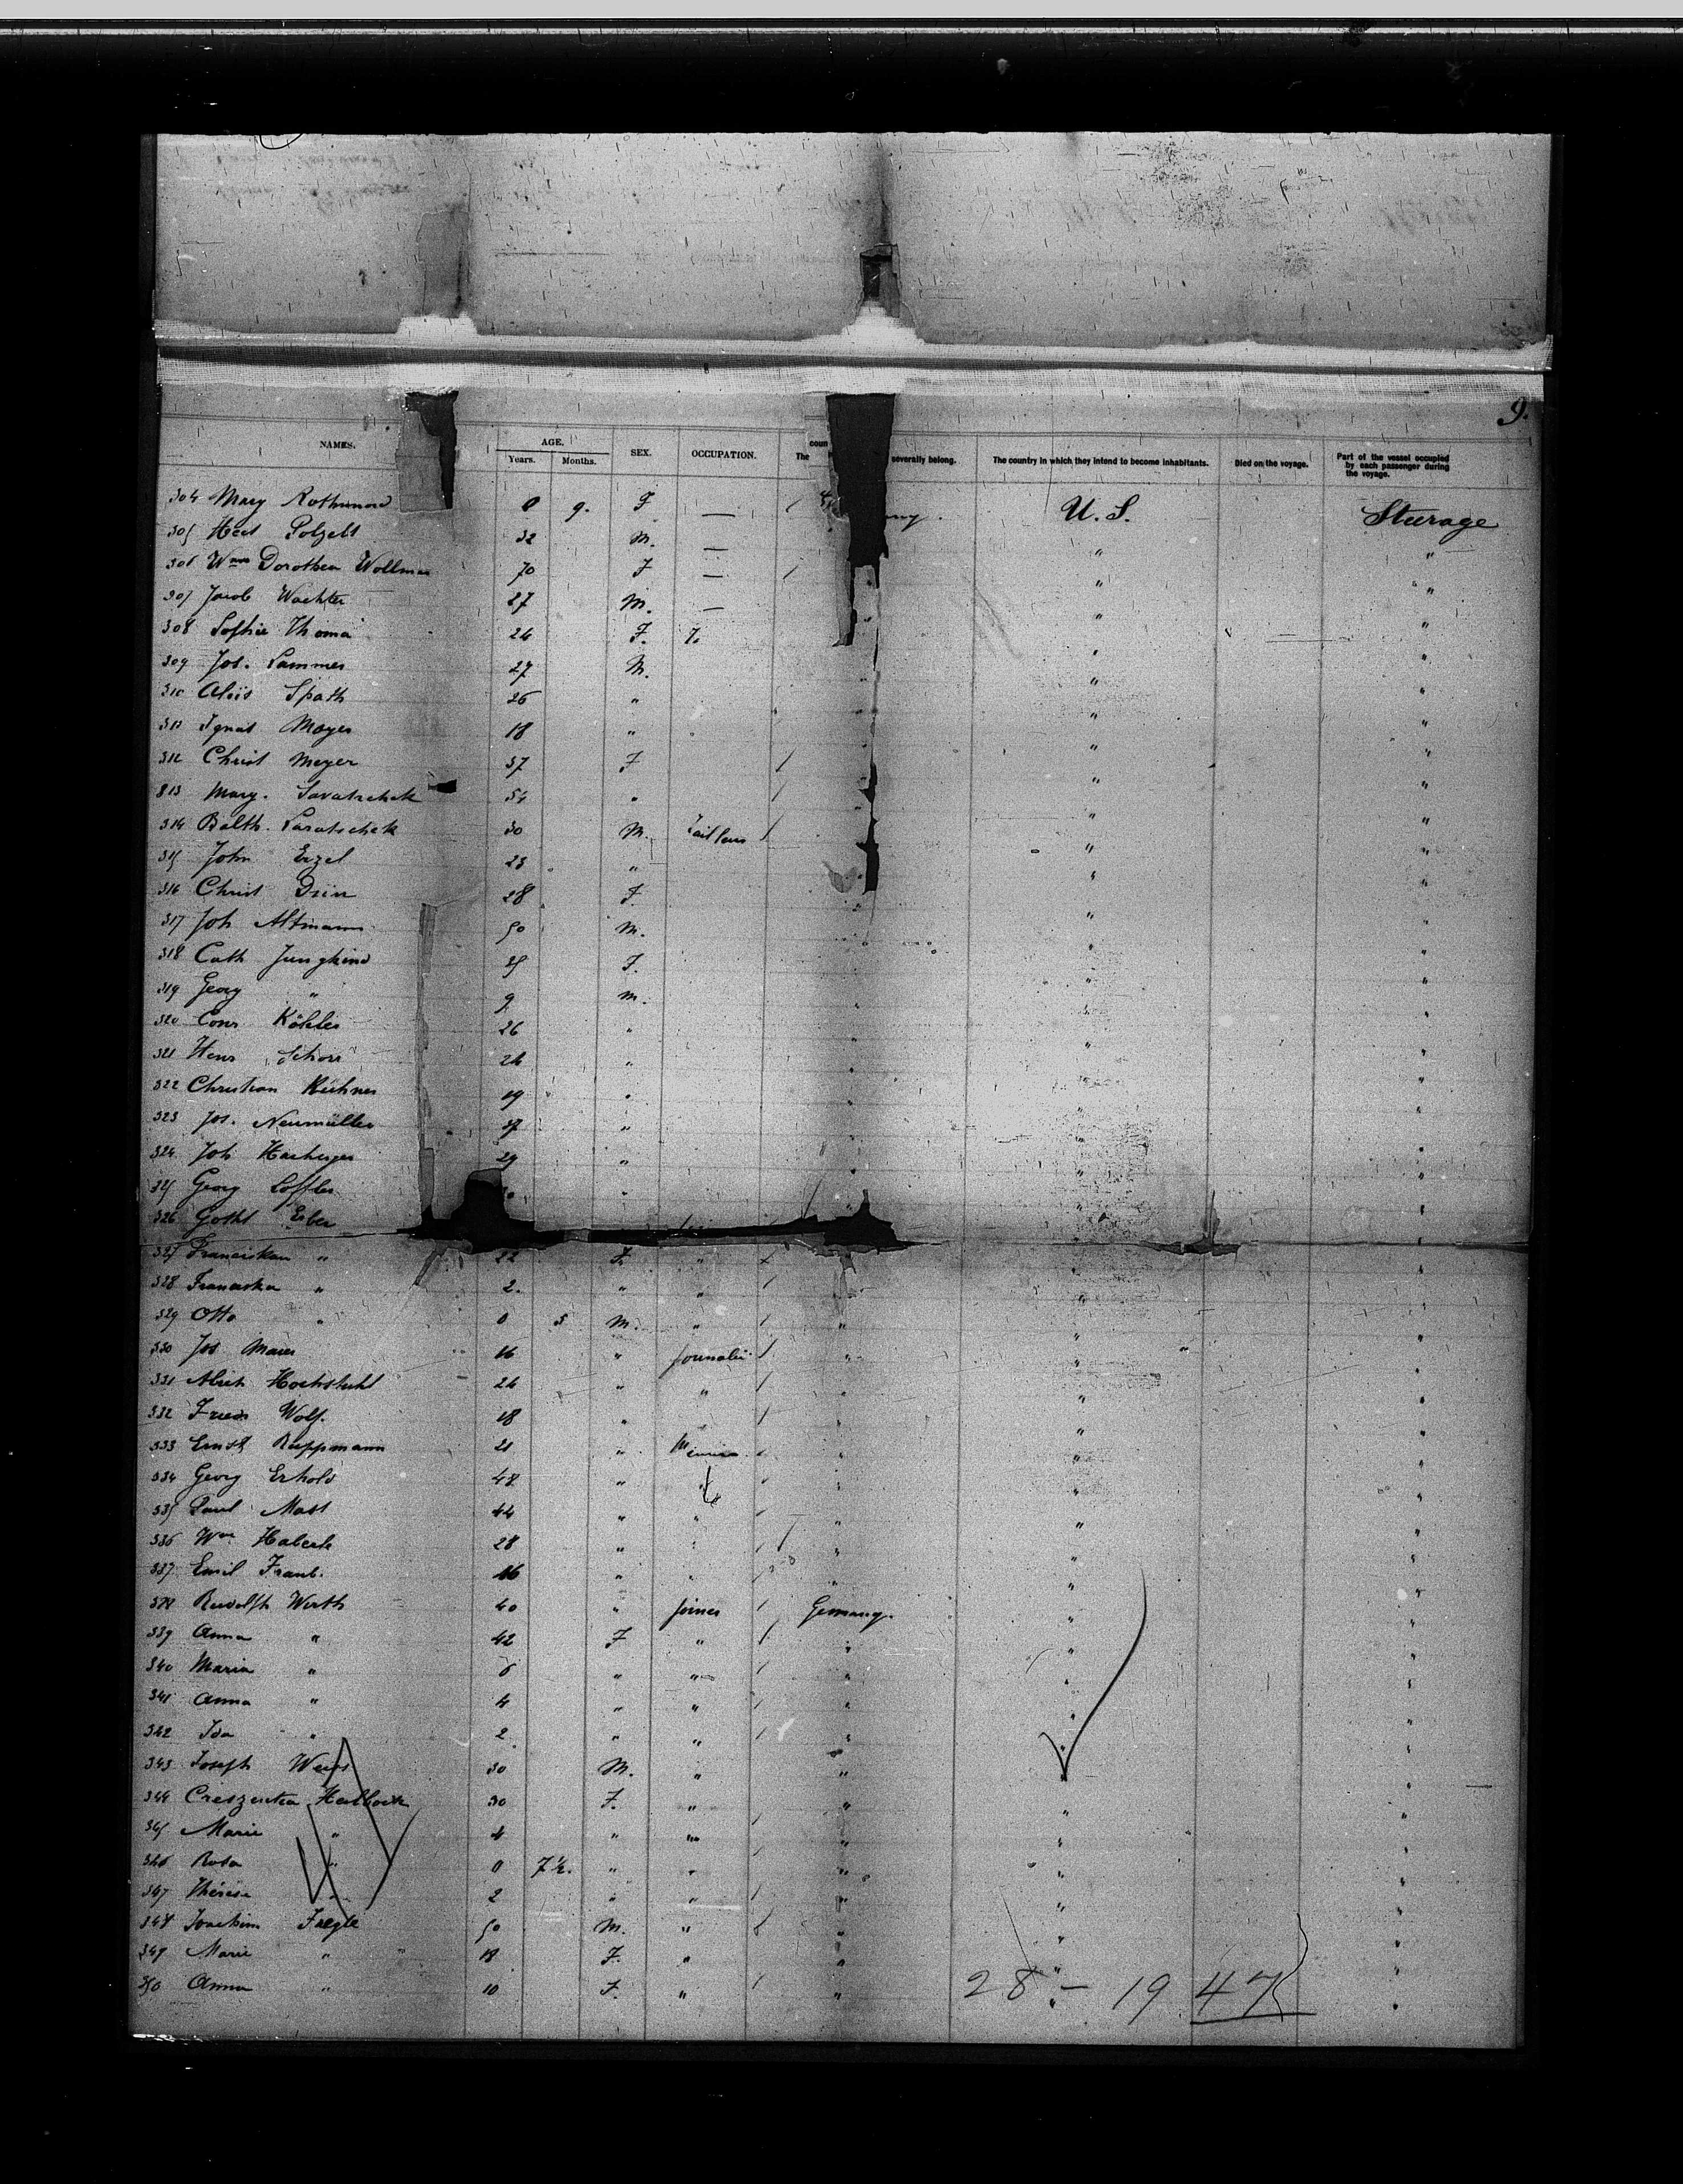 9.
NAMES. AGE. Years. Months. SEX. OCCUPATION. The coun severally belong. The country in which they intend to become inhabitants. Died on the voyage. Part of the vessel occupied by each passenger during the voyage.
304 Mary Rothmund 0 9. F — U. S. Steerage
305 Polzelt 32 M. — " "
306 Wwe Dorothea Wollmar 70 F — " "
307 Jacob Wachter 27 M. — " "
308 Sophie Thoma 24 F. " "
309 Jos. Lammer 27 M. " "
310 Alois Spath 26 " " "
311 Ignat Mayer 18 " " "
312 Christ Meyer 37 F " "
313 Mary. 54 " " "
314 Balth. 30 M. " "
315 John Erzel 23 " " "
316 Christ 28 F. " "
317 Joh Altmann 50 M. " "
318 Cath Jungkind 35 F. " "
319 Georg " 9 M. " "
320 Conr Köhler 26 " " "
321 Schorr 24 " " "
322 Christian Kühner 19 " " "
323 Jos. Neumüller 37 " " "
324 Joh 29 " " "
325 Georg Löffler " " "
326 Erber
327 " 22 F. " " "
328 Franciska " 2. " " " "
329 Otto " 0 5 M. " " " "
330 Jos Maier 16 " " " "
331 24 " " " " "
332 Wolf. 18 " " " "
333 Ernst Ruppmann 21 " " " "
334 Georg Erhold 48 " " " " "
335 Paul Mast 44 " " " " "
336 Wm Haberle 28 " " " " "
337 Emil 16 " " " " "
338 Rudolph Werth 40 " Joiner Germany. " "
339 Anna " 42 F " " " "
340 Maria " 6 " " " " "
341 Anna " 4 " " " " "
342 Ida " 2 " " " " "
343 Joseph Weiss 30 M. " " " "
344 Creszentia 30 F. " " " "
345 Marie " 4 " " " " "
346 Rosa " 0 7½. " " " " "
347 Thérèse " 2 " " " " "
348 Joachim 50 M. " " " "
349 Marie " 18 F. " " " "
350 Anna " 10 F. " " " "
28 – 19 47